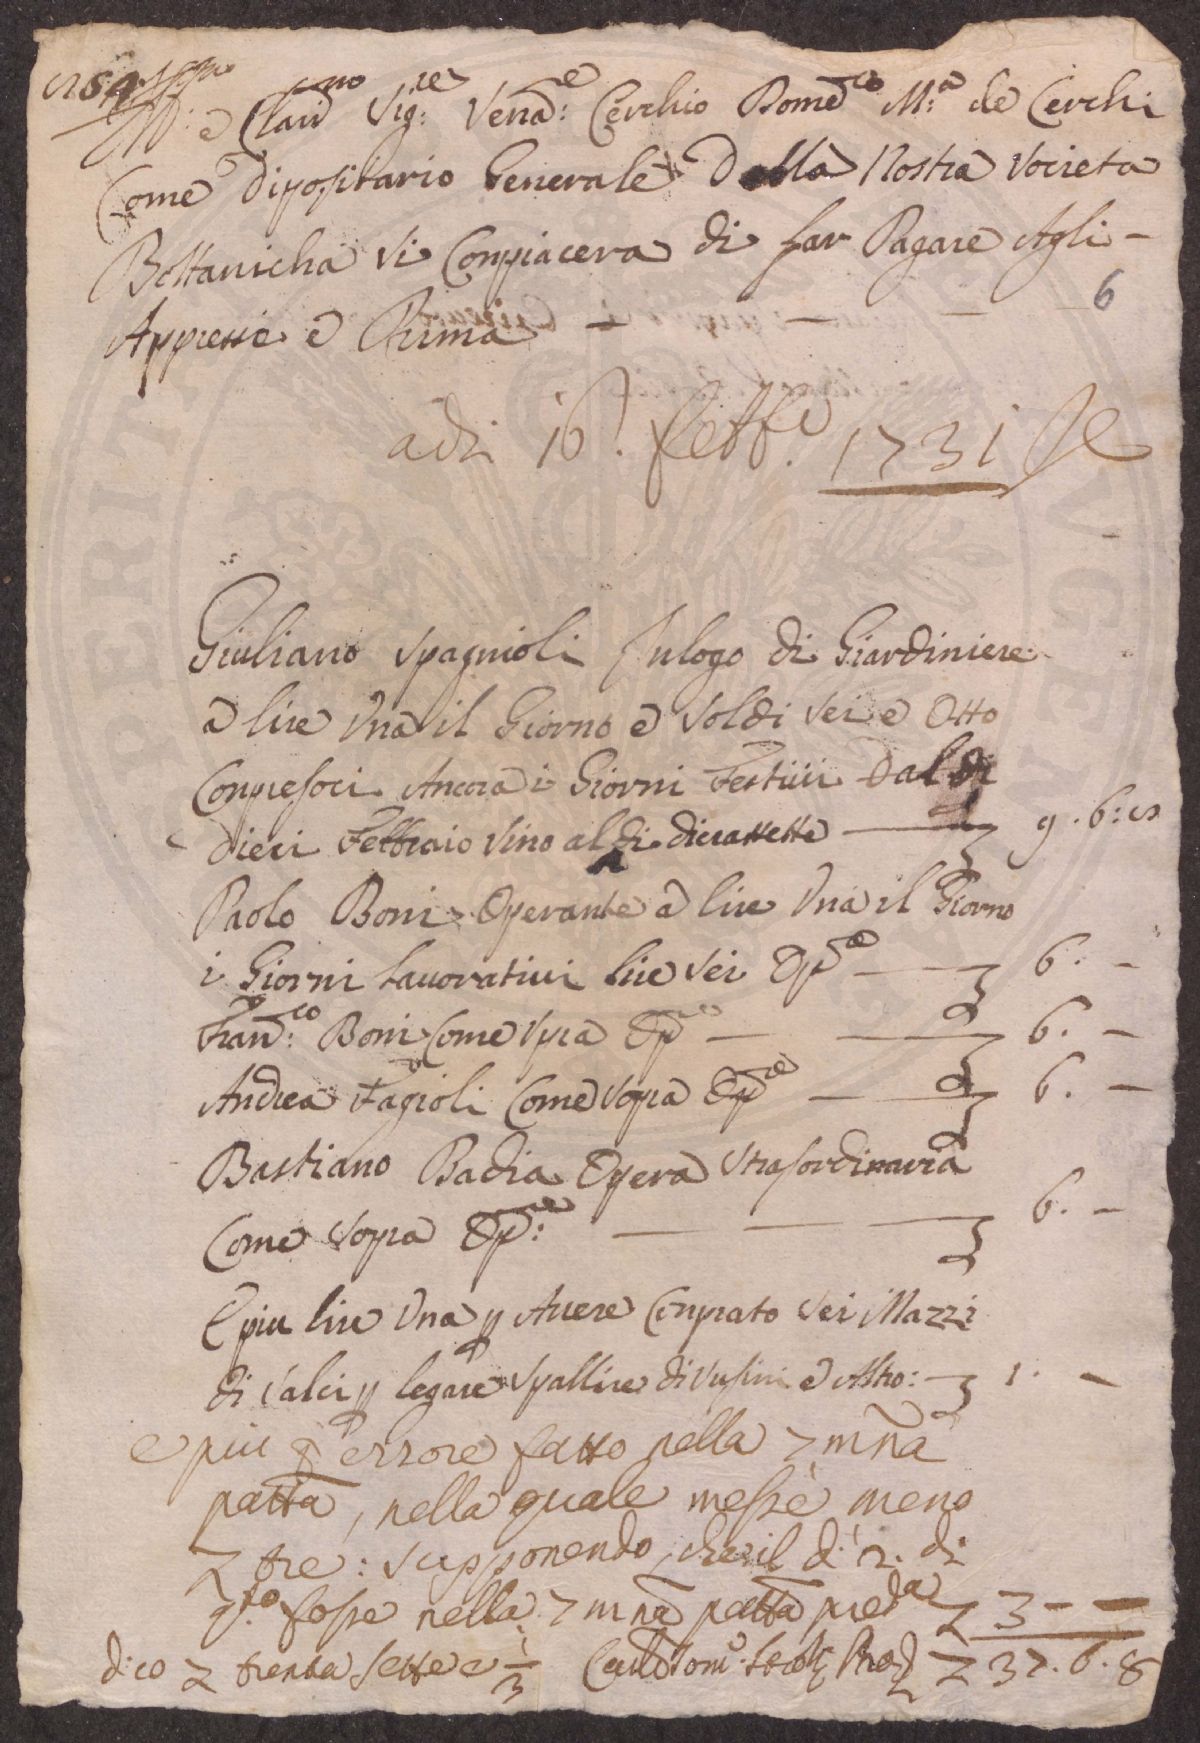 Ill:mo e Clarmo Sig:re Vend:e Cerchio Domenco M:a de Cerchi
Come Dipositario Generale Della Nostra Società
Bottanicha Si Conpiacera di far Pagare Agli -
Appresse e Prima — — — 6
adi 16. febb.o 1731
Giuliano Spagnioli Inlogo di Giardiniere
a lire Una il Giorno e Soldi Sei e Otto
Conpresoci Ancora i Giorni Festivi Dal di
dieci Febbraio Sino al di diciassette — 9.6:8
Paolo Boni Operante a lire Una il Giorno
i Giorni Lauorativi lire Sei — 6. —
Fran:co Boni Come Sopra — — 6. —
Andrea Fagioli Come Sopra — — 6. —
Bastiano Badia Opera Strasordinaria
Come Sopra — — — 6. —
E piu lire Una p Auere Conprato Sei Mazzi
di Salci p legare Spalliere di Susini e Altro: — 1. —
e piu p errore fatto nella 7mna
patta, nella quale messe meno
tre: supponendo, che il dì 2. di
q.to fosse nella 7mna patta pred.a 3 — —
dico trenta sette e 1/3 37.6.8